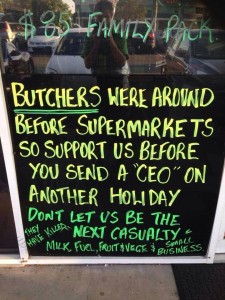 $85 FAMILY PACK
BUTCHERS WERE AROUND
BEFORE SUPERMARKETS
SO SUPPORT US BEFORE
YOU SEND A "CEO" ON
ANOTHER HOLIDAY
DONT LET US BE THE
NEXT CASUALTY.
THEY HAVE KILLED,
MILK, FUEL, FRUIT & VEGE & SMALL BUSINESS.